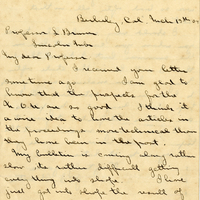 Berkeley, Cal
Professor L Bruner
Lincoln Neb
My dear Professor
I received your letter
some time ago. I am glad to
know that the prospects for the
are so good. I think it
a wise idea to have the articles in
the proceedings more technical than
they have been in the past.
My bulletin is coming along rather
slow. It is rather difficult getting
everything into shape. I have
just got into shape the result of